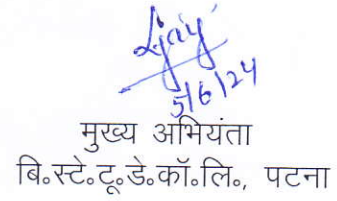 5/6/24
मुख्य अभियंता
बि॰स्टे॰टू॰डे॰कॉ॰लि॰, पटना